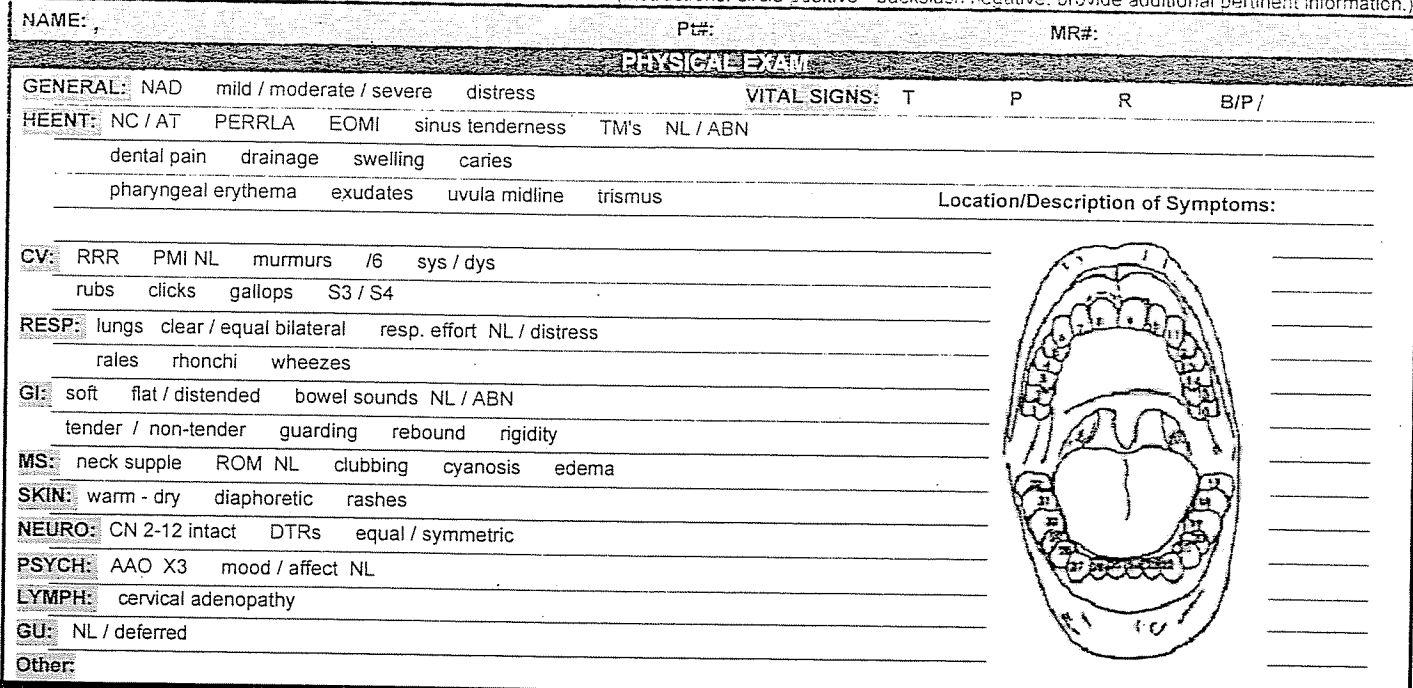 provide additional pertinent information.)
NAME: , Pt#: MR#:
PHYSICAL EXAM
GENERAL: NAD mild / moderate / severe distress VITAL SIGNS: T P R B/P /
HEENT: NC / AT PERRLA EOMI sinus tenderness TM's NL / ABN
dental pain drainage swelling caries
pharyngeal erythema exudates uvula midline trismus Location/Description of Symptoms:
CV: RRR PMI NL murmurs /6 sys / dys
rubs clicks gallops S3 / S4
RESP: lungs clear / equal bilateral resp. effort NL / distress
rales rhonchi wheezes
GI: soft flat / distended bowel sounds NL / ABN
tender / non-tender guarding rebound rigidity
MS: neck supple ROM NL clubbing cyanosis edema
SKIN: warm - dry diaphoretic rashes
NEURO: CN 2-12 intact DTRs equal / symmetric
PSYCH: AAO X3 mood / affect NL
LYMPH: cervical adenopathy
GU: NL / deferred
Other: